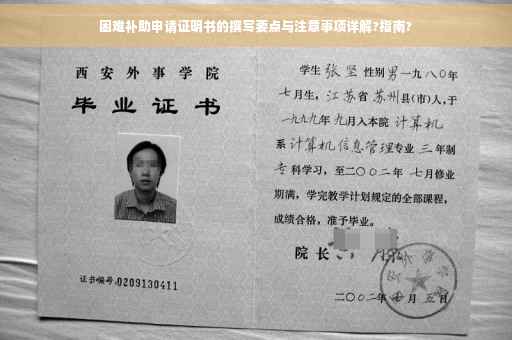 困难补助申请证明书的撰写要点与注意事项详解?指南?
西安外事学院
毕业证书
证书编号:0209130411
学生张坚性别男一九八〇年
七月生,江苏省苏州县(市)人,于
一九九九年九月入本院计算机
系计算机信息管理专业三年制
专科学习,至二〇〇二年七月修业
期满,学完教学计划规定的全部课程,
成绩合格,准予毕业。
院长
二〇〇二年 月五日